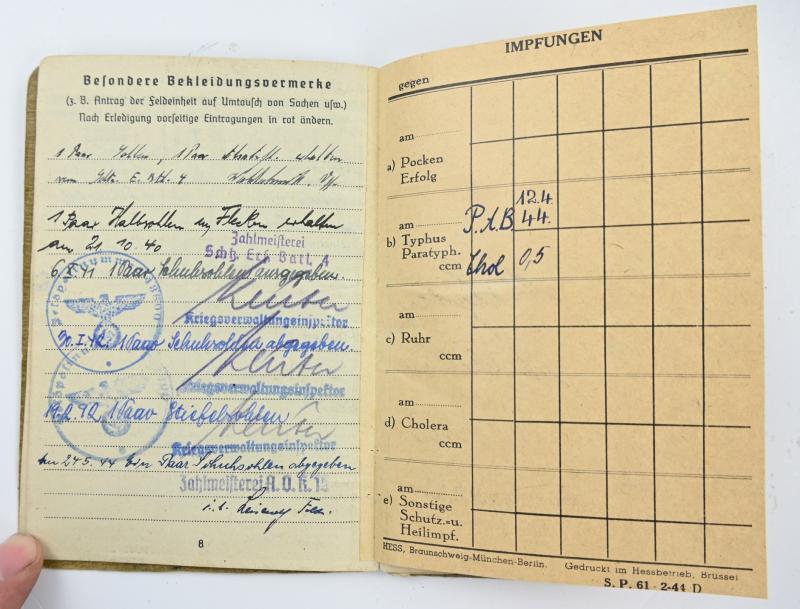 Besondere Bekleidungsvermerke
(z. B. Antrag der Feldeinheit auf Umtausch von Sachen usw.)
Nach Erledigung vorseitige Eintragungen in rot ändern.
1 Paar Sohlen, 1 Paar erhalten
vom E. Btl. 4
1 Paar Halbsohlen u. Flecken erhalten
am 21. 10. 40
Zahlmeisterei
Schtz. Ers. Batl. 4
6. X. 41 1 Paar Schuhsohlen ausgegeben.
Kriegsverwaltungsinspektor
30. I. 42. 1 Paar Schuhsohlen abgegeben.
Kriegsverwaltungsinspektor
19.2.42 1 Paar Stiefelsohlen
Kriegsverwaltungsinspektor
am 24.5.44 ein Paar Schuhsohlen abgegeben
Zahlmeisterei A.O.K. 15
8
IMPFUNGEN
gegen
am
a) Pocken
Erfolg
am P.A.B 12.4.
44.
b) Typhus
Paratyph.
ccm Chol 0,5
am
c) Ruhr
ccm
am
d) Cholera
ccm
am
e) Sonstige
Schutz.=u.
Heilimpf.
HESS, Braunschweig-München-Berlin. Gedruckt im Hessbetrieb, Brüssel
S. P. 61 - 2-44 D